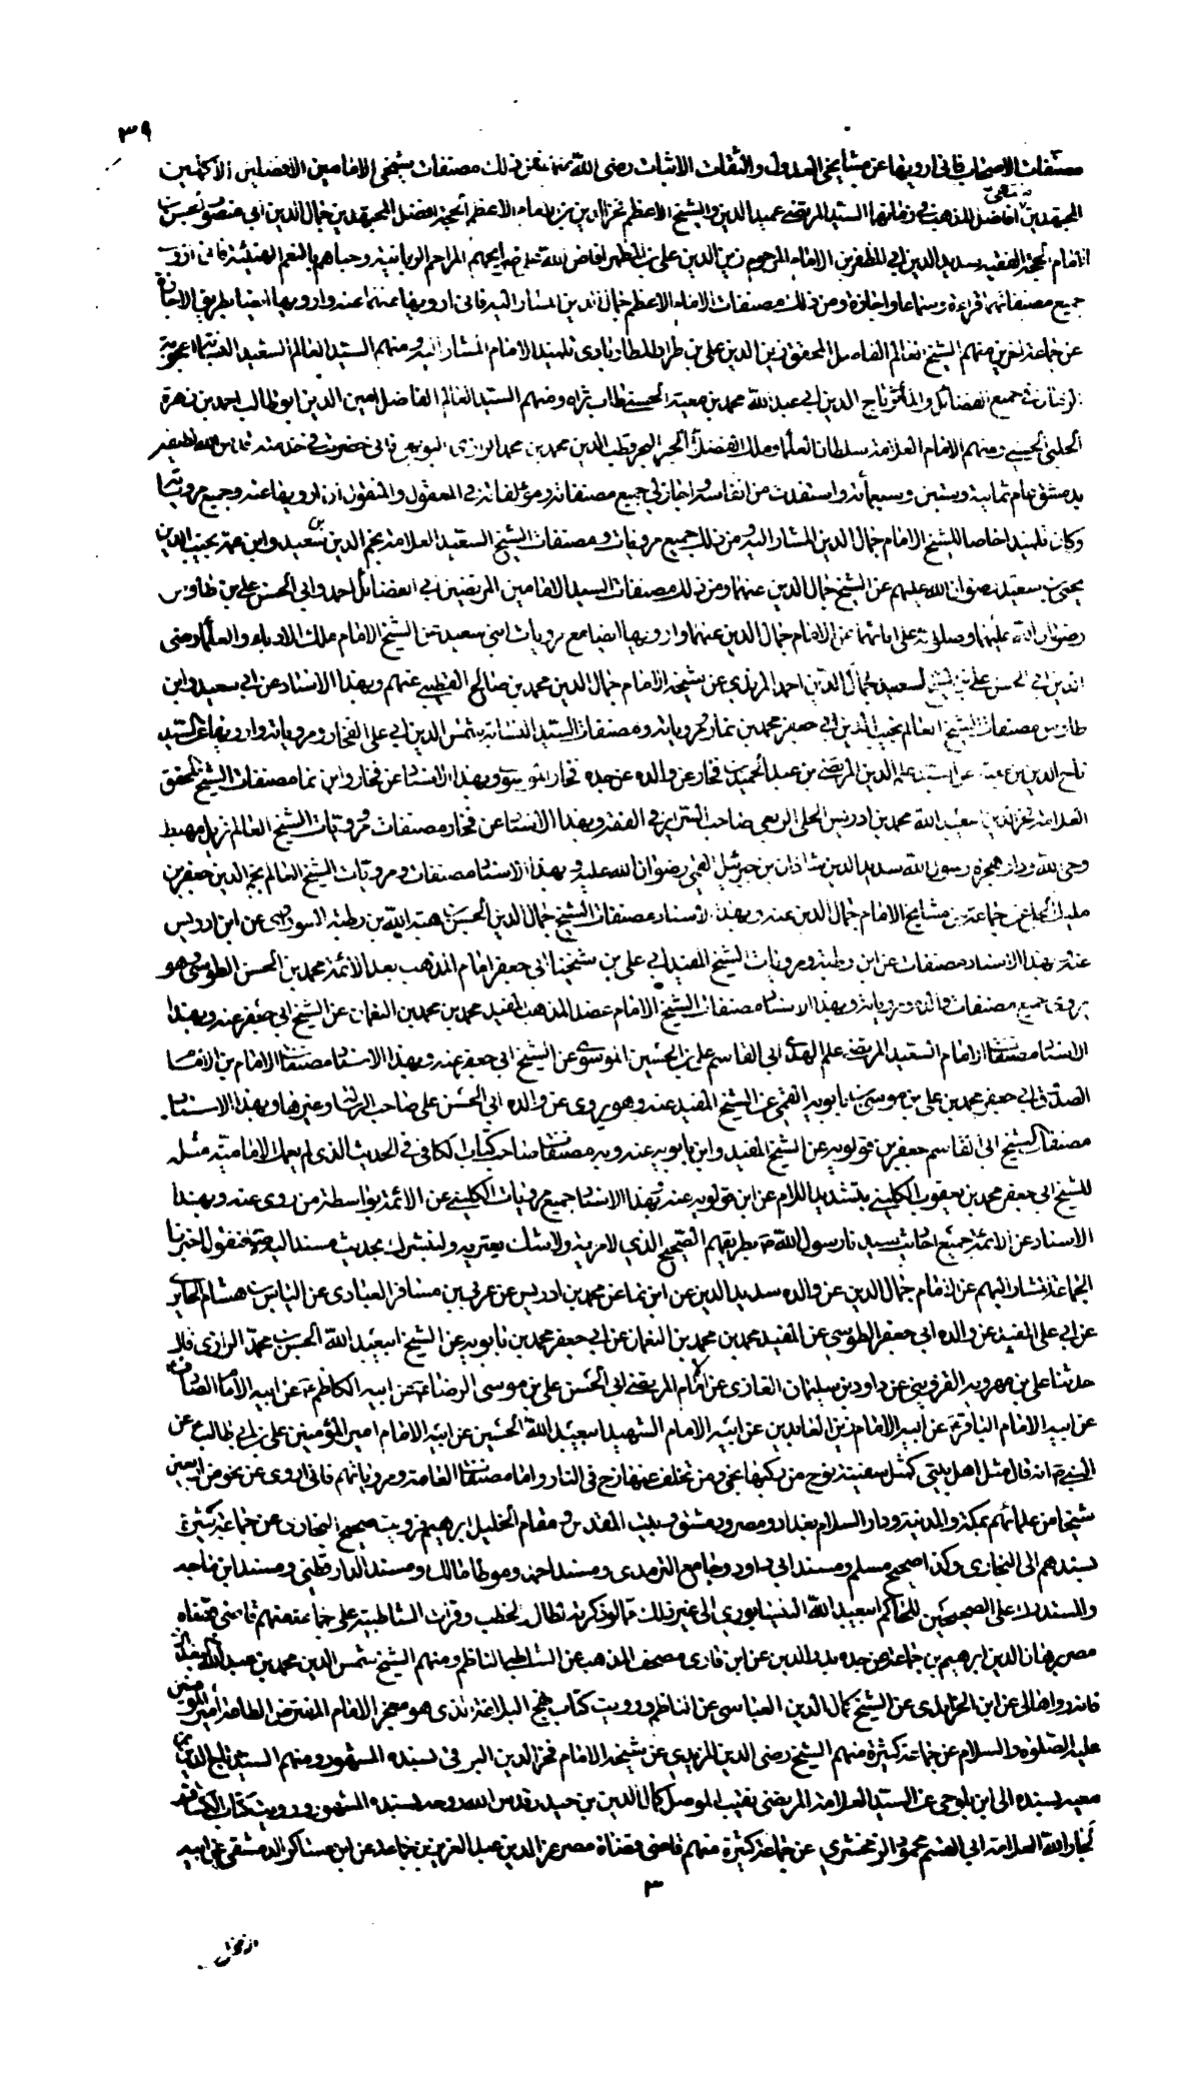 ٣٩
مصنفات الاصحاب فانى ارويها عن مشايخى العدول والثقات الاثبات رضى الله عنهم فمن ذلك مصنفات شيخى الامامين الافضلين الاكملين
المجتهدين منتهى افاضل المذهب فى زمانهما السيد المرتضى عميد الدين والشيخ الاعظم فخر الدين بن الامام الاعظم الحجة افضل المجتهدين جمال الدين ابى منصور الحسن بن
الامام الحجة الفقيه سديد الدين ابى المظفر بن الامام المرحوم زين الدين على بن المطهر افاض الله تعالى على ضرايحهم المراحم الربانية وحباهم بالنعم الهنيئة فانى اروى
جميع مصنفاتهما قراءة وسماعا واجازة ومن ذلك مصنفات الامام الاعظم جمال الدين المشار اليه فانى ارويها عنهما عنه وارويها ايضا بطريق الاجازة
عن جماعة اخرين منهم الشيخ العالم الفاضل المحقق زين الدين على بن طراد المطارباذى تلميذ الامام المشار اليه ومنهم السيد العالم السعيد النسابة اعجوبة
الزمان فى جميع الفضائل والمآثر تاج الدين ابى عبد الله محمد بن معية الحسنى طاب ثراه ومنهم السيد العالم الفاضل امين الدين ابو طالب احمد بن زهرة
الحلبى الحسينى ومنهم الامام العلامة سلطان العلما وملك الفضلا الحبر البحر قطب الدين محمد بن محمد الرازى البويهى فانى حضرت فى خدمته قدس الله لطيفه
بدمشق عام ثمانية وستين وسبعمائة واستفدت من انفاسه واجاز لى جميع مصنفاته ومؤلفاته فى المعقول والمنقول ان ارويها عنه وجميع مروياته
وكان تلميذا خاصا للشيخ الامام جمال الدين المشار اليه ومن ذلك جميع مرويات ومصنفات الشيخ السعيد العلامة نجم الدين بن سعيد وابن عمه نجيب الدين
يحيى بن سعيد رضوان الله عليهم عن الشيخ جمال الدين عنهما ومن ذلك مصنفات السيدين الامامين المرتضيين ابى الفضائل احمد وابى الحسن على بن طاوس
رضوان الله عليهما وصلواته على ابائهما عن الامام جمال الدين عنهما وارويها ايضا مع مرويات ابنى سعيد عن الشيخ الامام ملك الادباء والعلماء رضى
الدين ابى الحسن على بن الشيخ السعيد جمال الدين احمد المزيدى عن شيخه الامام جمال الدين محمد بن صالح القسينى عنهم وبهذا الاسناد عن ابى سعيد وابن
طاوس مصنفات الشيخ العالم نجيب الدين ابى جعفر محمد بن نما ومروياته ومصنفات السيد النسابة شمس الدين ابى على الفخار ومروياته وارويها عن السيد
تاج الدين بن معية عن السيد علم الدين المرتضى بن عبد الحميد بن فخار عن والده عن جده فخار الموسوى وبهذا الاسناد عن فخار وابن نما مصنفات الشيخ المحقق
العلامة فخر الدين ابى عبد الله محمد بن ادريس الحلى الربعى صاحب السرائر فى الفقه وبهذا الاسناد عن فخار مصنفات ومرويات الشيخ العالم نزيل مهبط
وحى الله ودار هجرة رسول الله سديد الدين شاذان بن جبرئيل القمى رضوان الله عليه وبهذا الاسناد مصنفات ومرويات الشيخ العالم نجم الدين جعفر بن
مليك الحلبى عن جماعة من مشايخ الامام جمال الدين عنه وبهذا الاسناد مصنفات الشيخ جمال الدين الحسين بن هبة الله بن رطبة السوراوى عن ابن ادريس
عنه وبهذا الاسناد مصنفات عن ابن رطبة ومرويات الشيخ المفيد ابى على بن شيخنا ابى جعفر امام المذهب بعد الائمة محمد بن الحسن الطوسى وهو
يروى جميع مصنفات والده ومروياته وبهذا الاسناد مصنفات الشيخ الامام عضد المذهب المفيد محمد بن محمد بن النعمان عن الشيخ ابى جعفر عنه وبهذا
الاسناد مصنفات الامام السعيد المرتضى علم الهدى ابى القاسم على بن الحسين الموسوى عن الشيخ ابى جعفر عنه وبهذا الاسناد مصنفات الامام بن الامام
الصدوق ابى جعفر محمد بن على بن موسى بن بابويه القمى عن الشيخ المفيد عنه وهو يروى عن والده ابى الحسن على صاحب الرسالة وغيرها وبهذا الاسناد
مصنفات الشيخ ابى القاسم جعفر بن قولويه عن الشيخ المفيد وابن بابويه عنه وبه مصنفات صاحب كتاب الكافى فى الحديث الذى لم يعمل الامامية مثله
للشيخ ابى جعفر محمد بن يعقوب الكلينى بتشديد اللام عن ابن قولويه عنه وبهذا الاسناد جميع مرويات الكلينى عن الائمة بواسطة من روى عنه وبهذا
الاسناد عن الائمة جميع احاديث سيدنا رسول الله ص بطريقهم الصحيح الذى لا مرية ولا شك يعتريه ولنشرك بحديث مسند اليه فنقول اخبرنا
الجماعة المشار اليهم عن الامام جمال الدين عن والده سديد الدين عن ابن نما عن محمد بن ادريس عن عربى بن مسافر العبادى عن الياس بن هشام الحايرى
عن ابى على المفيد عن والده ابى جعفر الطوسى عن المفيد محمد بن محمد بن النعمان عن ابى جعفر محمد بن بابويه عن الشيخ ابى عبد الله الحسين بن محمد الرازى قال
حدثنا على بن مهرويه القزوينى عن داود بن سليمان الغازى عن الامام المرتضى ابى الحسن على بن موسى الرضا ع عن ابيه الكاظم ع عن ابيه الامام الصادق
عن ابيه الامام الباقر ع عن ابيه الامام زين العابدين عن ابيه الامام الشهيد ابى عبد الله الحسين عن ابيه الامام امير المؤمنين على بن ابى طالب ع عن
النبى ص انه قال مثل اهل بيتى كمثل سفينة نوح من ركبها نجى ومن تخلف عنها زخ فى النار واما مصنفات العامة ومروياتهم فانى اروى عن نحو من اربعين
شيخا من علمائهم بمكة والمدينة ودار السلام بغداد ومصر ودمشق وبيت المقدس ومقام الخليل ابرهيم فرويت صحيح البخارى عن جماعة كثيرة
بسندهم الى البخارى وكذا صحيح مسلم ومسند ابى داود وجامع الترمدى ومسند احمد وموطا مالك ومسند الدارقطنى ومسند ابن ماجه
والمستدرك على الصحيحين للحاكم ابى عبد الله النيسابورى الى غير ذلك مما لو ذكرته لطال الخطب وقرات الشاطبية على جماعة منهم قاضى قضاة
مصر برهان الدين ابرهيم بن جماعة عن جده بدر الدين عن ابن قارى مصحف الذهب عن الشاطبى الناظم ومنهم الشيخ شمس الدين محمد بن عبد الله البغدادى
فانه رواها لى عن ابن الخرايدى عن الشيخ كمال الدين العباسى عن الناظم ورويت كتاب نهج البلاغة الذى هو معجز الامام المفترض الطاعة امير المؤمنين
عليه الصلوة والسلام عن جماعة كثيرة منهم الشيخ رضى الدين المزيدى عن شيخه الامام فخر الدين البوقى بسنده المشهور ومنهم السيد تاج الدين بن
معيه بسنده الى ابن بلوجى عن السيد العلامة المرتضى نقيب الموصل كمال الدين بن حيدر قدس الله روحه بسنده المشهور ورويت كتاب الكشاف
لجار الله العلامة ابى القسم محمود الزمخشرى عن جماعة كثيرة منهم قاضى قضاة مصر عز الدين عبد العزيز بن جماعة عن ابن عساكر الدمشقى عن ابيه
٣